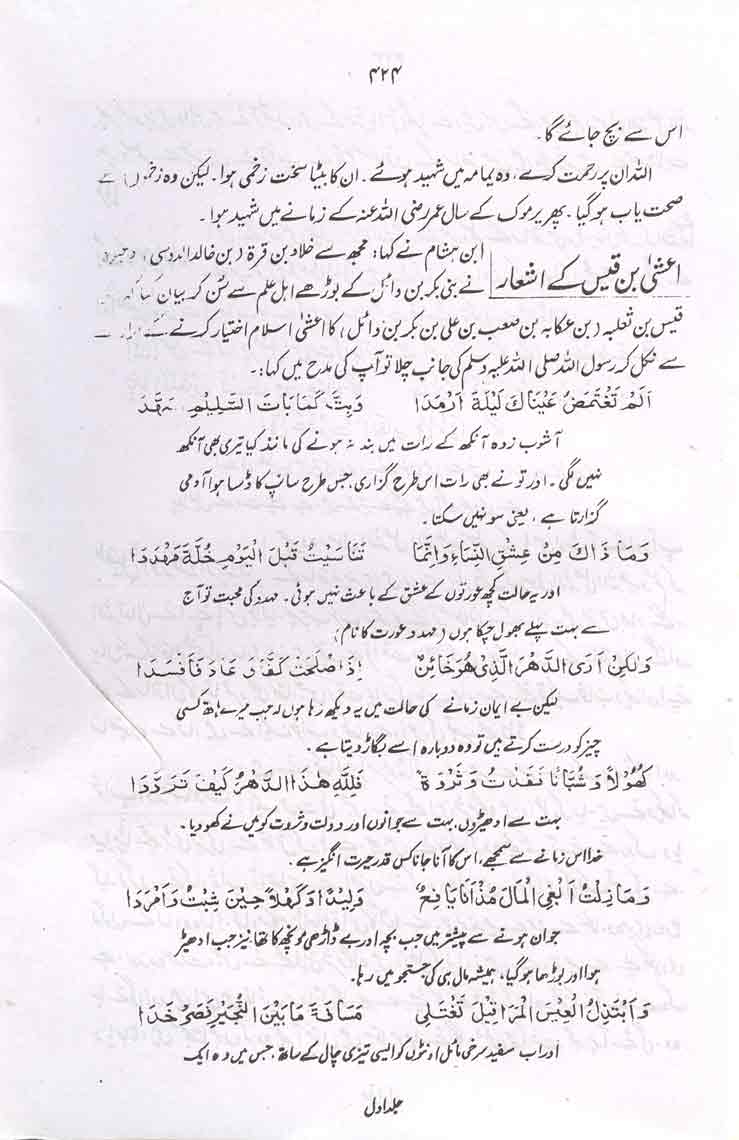 ۴۲۴
اس سے بچ جائے گا۔
اللہ ان پر رحمت کرے، وہ یمامہ میں شہید ہوئے۔ ان کا بیٹا سخت زخمی ہوا۔ لیکن وہ زخموں سے
صحت یاب ہو گیا۔ پھر یرموک کے سال عمر رضی اللہ عنہ کے زمانے میں شہید ہوا۔
اعشیٰ بن قیس کے اشعار
ابن ہشام نے کہا: مجھ سے خلاد بن قرۃ (بن خالد الدوسی) وغیرہ
نے بنی بکر بن وائل کے بوڑھے اہل علم سے سن کر بیان کیا کہ
قیس بن ثعلبہ (بن عکابہ بن صعب بن علی بن بکر بن وائل) کا اعشیٰ اسلام اختیار کرنے کے
سے نکل کر رسول اللہ صلی اللہ علیہ وسلم کی جانب چلا تو آپ کی مدح میں کہا:۔
اَلَمْ تَغْتَمِضْ عَيْنَاكَ لَيْلَةَ اَرْمَدَا وَبِتَّ كَمَا بَاتَ السَّلِيْمُ
آشوب زدہ آنکھ کے رات میں بند نہ ہونے کی مانند کیا تیری بھی آنکھ
نہیں لگی۔ اور تو نے بھی رات اس طرح گزاری جس طرح سانپ کا ڈسا ہوا آدمی
گزارتا ہے، یعنی سو نہیں سکتا۔
وَمَا ذَاكَ مِنْ عِشْقِ النِّسَاءِ وَاِنَّمَا تَنَاسَيْتُ قَبْلَ الْيَوْمِ خُلَّةَ مَهْدَدَا
اور یہ حالت کچھ عورتوں کے عشق کے باعث نہیں ہوئی۔ مہدد کی محبت تو آج
سے بہت پہلے بھول چکا ہوں (مہدد عورت کا نام)
وَلٰكِنْ اَرَى الدَّهْرَ الَّذِيْ هُوَ خَائِنٌ اِذَا صَلَحَتْ كَفَّاَيَ عَادَ فَاَفْسَدَا
لیکن بے ایمان زمانے کی حالت میں یہ دیکھ رہا ہوں کہ جب میرے ہاتھ کسی
چیز کو درست کرتے ہیں تو وہ دوبارہ اسے بگاڑ دیتا ہے۔
كُهُوْلًا وَشُبَّانًا فَقَدْتُ وَثَرْوَةً فَلِلّٰهِ هٰذَا الدَّهْرُ كَيْفَ تَرَدَّدَا
بہت سے ادھیڑوں، بہت سے جوانوں اور دولت و ثروت کو میں نے کھو دیا۔
خدا اس زمانے سے سمجھے، اس کا آنا جانا کس قدر حیرت انگیز ہے۔
وَمَا زِلْتُ اَبْغِي الْمَالَ مُذْ اَنَا يَافِعٌ وَلِيْدًا وَكَهْلًا حِيْنَ شِبْتُ وَاَمْرَدَا
جوان ہونے سے پیشتر میں جب بچہ اور بے ڈاڑھی مونچھ کا تھا، نیز جب ادھیڑ
ہوا اور بوڑھا ہو گیا، ہمیشہ مال ہی کی جستجو میں رہا۔
وَاَبْتَذِلُ الْعِيْسَ الْمَرَاقِيْلَ تَغْتَلِيْ مَسَافَةَ مَا بَيْنَ النُّجَيْرِ فَصَرْخَدَا
اور اب سفید سرخی مائل اونٹوں کو ایسی تیزی چال کے ساتھ، جس میں وہ ایک
جلد اول